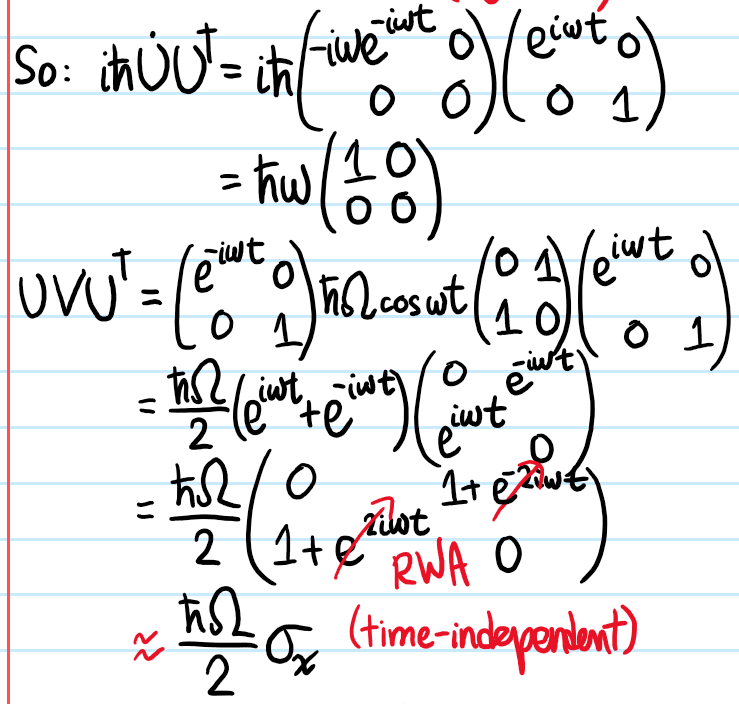 So: iħU̇U† = iħ(-iωe^{-iωt} 0; 0 0)(e^{iωt} 0; 0 1)
= ħω(1 0; 0 0)
UVU† = (e^{-iωt} 0; 0 1)ħΩcosωt(0 1; 1 0)(e^{iωt} 0; 0 1)
= ħΩ/2(e^{iωt}+e^{-iωt})(0 e^{-iωt}; e^{iωt} 0)
= ħΩ/2(0 1+e^{-2iωt}; 1+e^{2iωt} 0) RWA
≈ ħΩ/2 σₓ (time-independent)